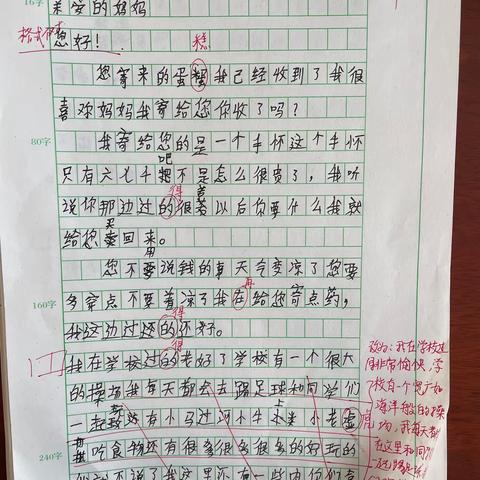 16字
亲爱的妈妈
格式
您好！
糕
您寄来的蛋糕我已经收到了我很
喜欢妈妈我寄给您你收了吗？
80字
我寄给您的是一个手怀这个手怀
吧
只有六七千把不是怎么很贵了，我听
得 苦
说你那边过的很著以后你要什么我就
买
给您卖回来。
用
您不要说钱的事天今变凉了您要
再
160字
多穿点不要着凉了我在给您寄点药，
得
我这边过还的还好。
得
我在学校过的老好了学校有一个很大
的操场我每天都会去踢足球和同学们
一起 还有小马过河小牛 小老虎
吃食物还有很多很多很多的好玩的
240字
不说了我这里还有一些
改为：我在学校过
得非常愉快，学
校有一个宽广如
海洋般的操
场，我每天都
在这里和同学
一起踢足球